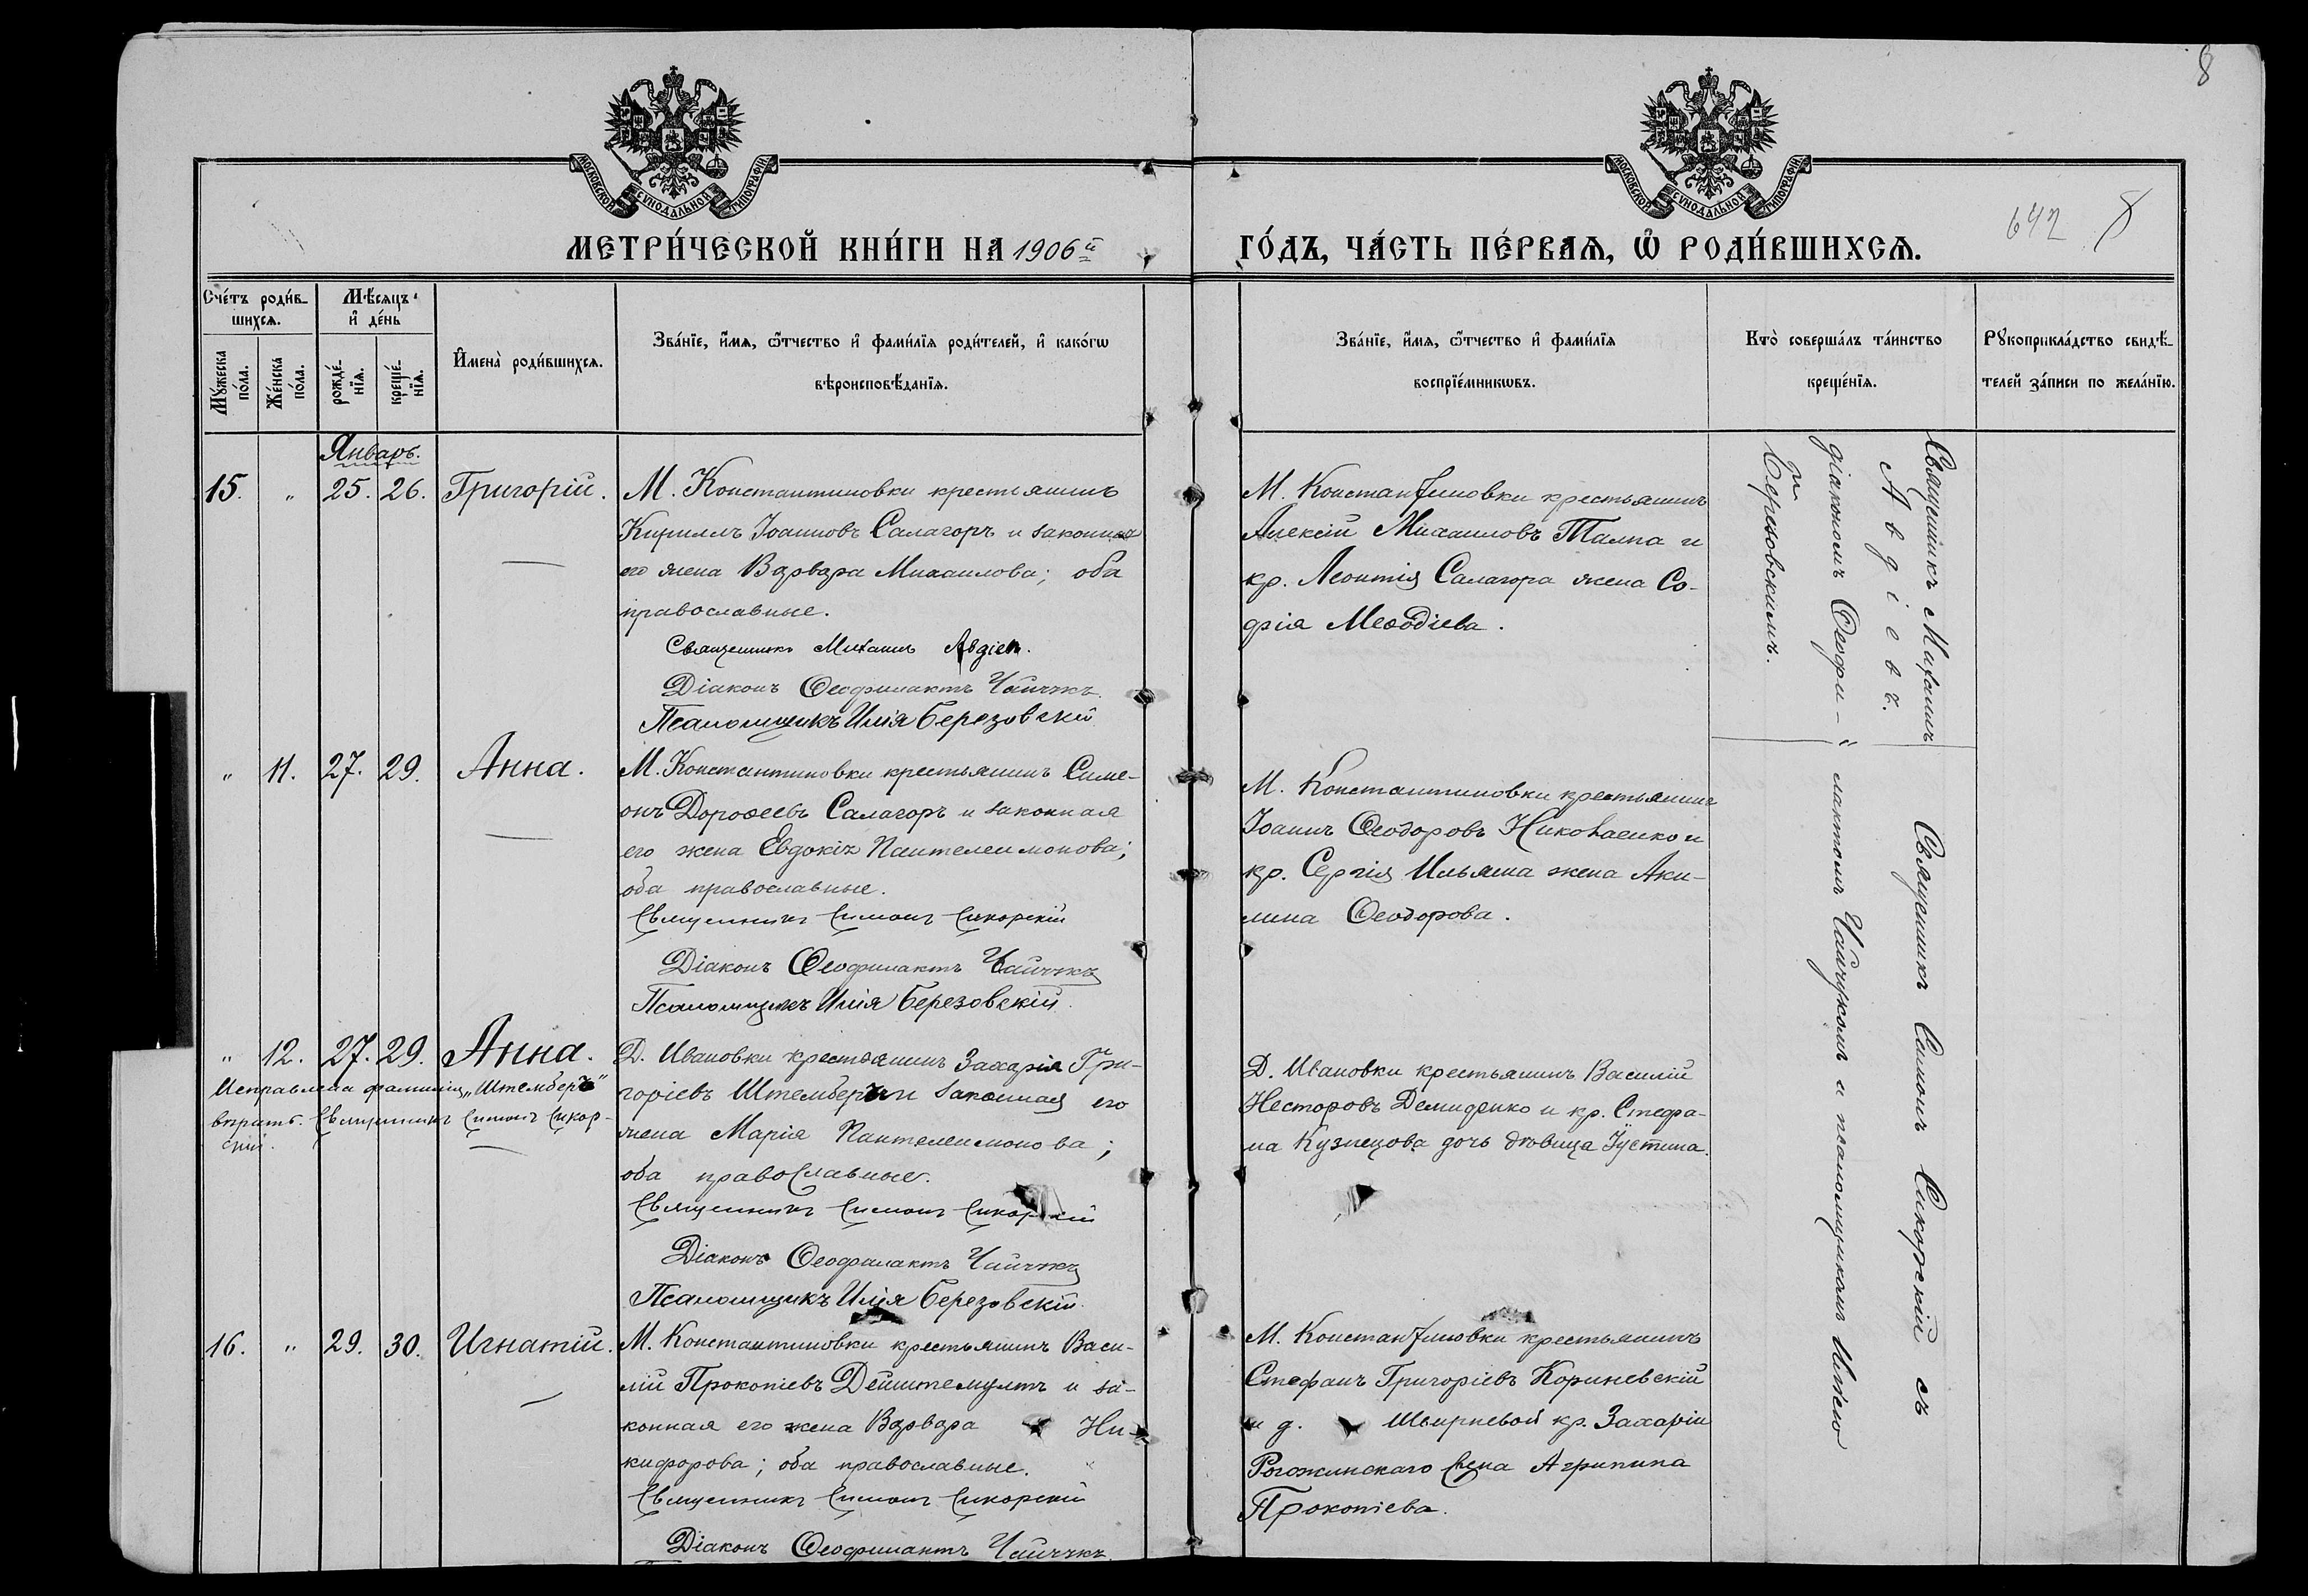 8
МОСКОВСКОЙ СУНОДАЛЬНОЙ ТИПОГРАФІИ
МОСКОВСКОЙ СУНОДАЛЬНОЙ ТИПОГРАФІИ
642 8
МЕТРИ́ЧЕСКОЙ КНИ́ГИ НА 1906й
ГО́ДЪ, ЧА́СТЬ ПЕ́РВАѦ, Ѡ҆ РОДИ́ВШИХСѦ.
Сче́тъ роди́в-
шихсѧ.
Мꙋ́жеска по́ла.
Же́нска по́ла.
Мѣ́сѧцъ
и҆ де́нь
рожде́-
нїѧ.
креще́-
нїѧ.
И҆мена̀ роди́вшихсѧ.
Зва́нїе, и҆́мѧ, ѻ҆́тчество и҆ фами́лїѧ роди́телей, и҆ како́гѡ
вѣроисповѣ́данїѧ.
Зва́нїе, и҆́мѧ, ѻ҆́тчество и҆ фами́лїѧ
воспрїе́мникѡвъ.
Кто̀ соверша́лъ та́инство
креще́нїѧ.
Рꙋкоприкла́дство свидѣ́-
телей за́писи по жела́нїю.
Январь.
15. " 25. 26. Григорій.
М. Константиновки крестьянинъ
Кириллъ Іоанновъ Салагоръ и законная
его жена Варвара Михаилова; оба
православные.
Священникъ Михаилъ Авдіев.
Діаконъ Ѳеофилактъ Чайчукъ
Псаломщикъ Илія Березовскій
М. Константиновки крестьянинъ
Алексій Михаиловъ Талпа и
кр. Леонтія Салагора жена Со-
фія Меѳодіева.
Священникъ Михаилъ
Авдіевъ.
" 11. 27. 29. Анна.
М. Константиновки крестьянинъ Симе-
онъ Дороѳеевъ Салагоръ и законная
его жена Евдокія Пантелеимонова;
оба православные.
Священникъ Симонъ Сикорскій
Діаконъ Ѳеофилактъ Чайчукъ
Псаломщикъ Илія Березовскій.
М. Константиновки крестьянинъ
Іоаннъ Ѳеодоровъ Николаенко и
кр. Сергія Ильяша жена Аки-
лина Ѳеодорова.
Священникъ Симонъ Сикорскій съ
діакономъ Ѳеофи- " лактомъ Чайчукомъ и псаломщикомъ Иліею
Березовскимъ.
" 12. 27. 29. Анна.
Исправлена фамилія „Штемберъ"
вѣрить. Священникъ Симонъ Сикор-
скій.
Д. Ивановки крестьянинъ Захарія Гри-
горіевъ Штемберъ и законная его
жена Марія Пантелеимонова;
оба православные.
Священникъ Симонъ Сикорскій
Діаконъ Ѳеофилактъ Чайчукъ
Псаломщикъ Илія Березовскій.
Д. Ивановки крестьянинъ Василій
Несторовъ Демиденко и кр. Стефа-
на Кузнецова дочь дѣвица Іустина.
16. " 29. 30. Игнатій.
М. Константиновки крестьянинъ Васи-
лій Прокопіевъ Дейштемултъ и за-
конная его жена Варвара Ни-
кифорова; оба православные.
Священникъ Симонъ Сикорскій
Діаконъ Ѳеофилактъ Чайчукъ
М. Константиновки крестьянинъ
Стефанъ Григоріевъ Кориневскій
и д. Швырневой кр. Захаріи
Рогожинскаго жена Агрипина
Прокопіева.